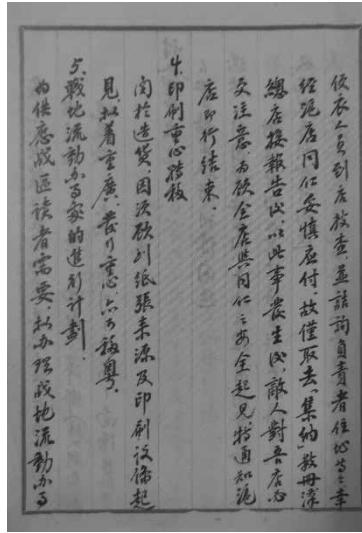 便衣人員到店教查並詰詢負責者住址等之幸
經滬店同仁妥慎應付、故僅取去「集納数冊深
總店接報告後、以此事發生後、敵人對吾店必
更注意、為欲全店與同仁之安全起見特通知滬
店即行結束。
4.印刷重心移板
関於造貨、因須顧到紙張来源及印刷設備起
見、拟着重廣、發行重心亦可移粤。
5.戰地流動办事家的進行計劃.
為供應战區读者需要、拟办理战地流動办事